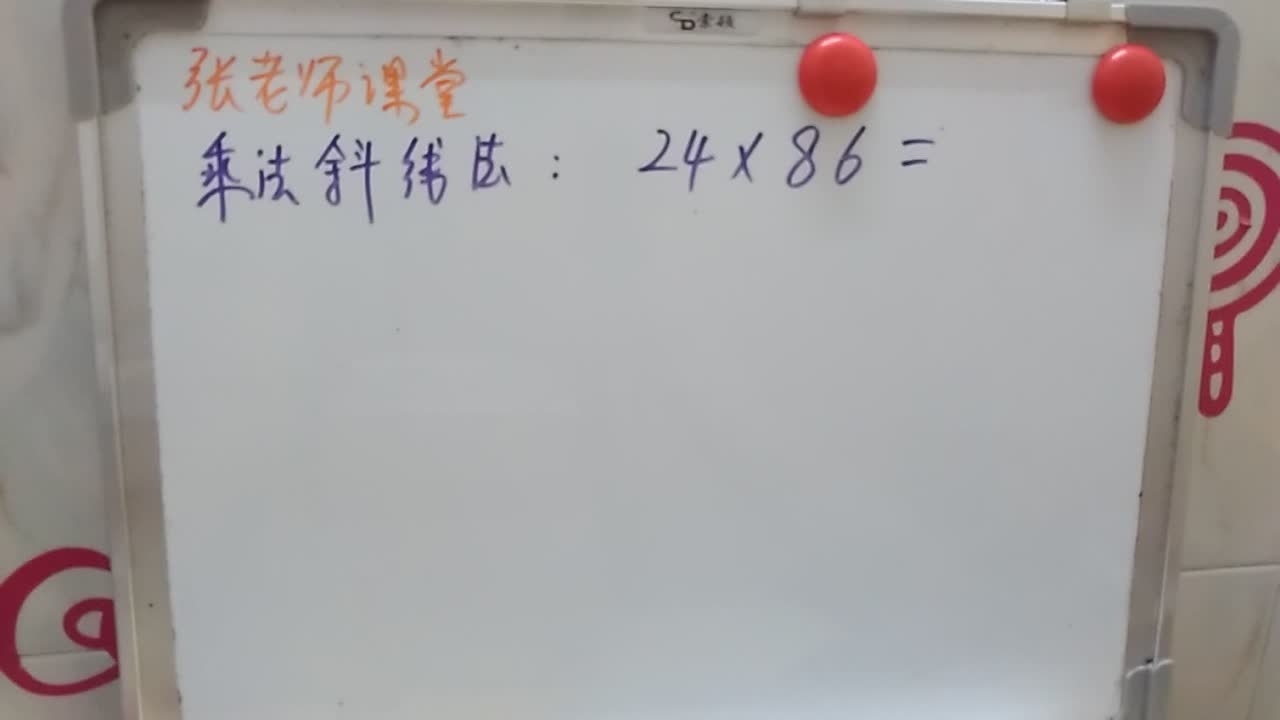 张老师课堂
乘法斜线法： 24×86=